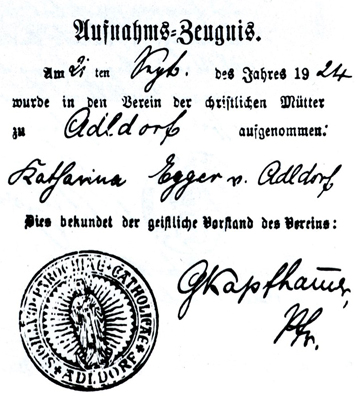 Aufnahms-Zeugnis.
Am 21 ten Sept. des Jahres 1924
wurde in den Verein der christlichen Mütter
zu Adldorf aufgenommen:
Katharina Egger v. Adldorf
Dies bekundet der geistliche Vorstand des Vereins:
Pfr.
SIGILLUM PAROCHIAE CATHOLICAE
ADLDORF